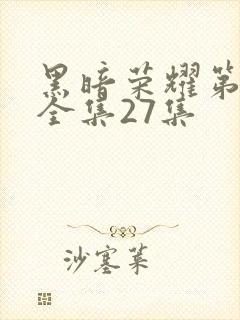 黑暗荣耀第
全集27集
沙塞莱